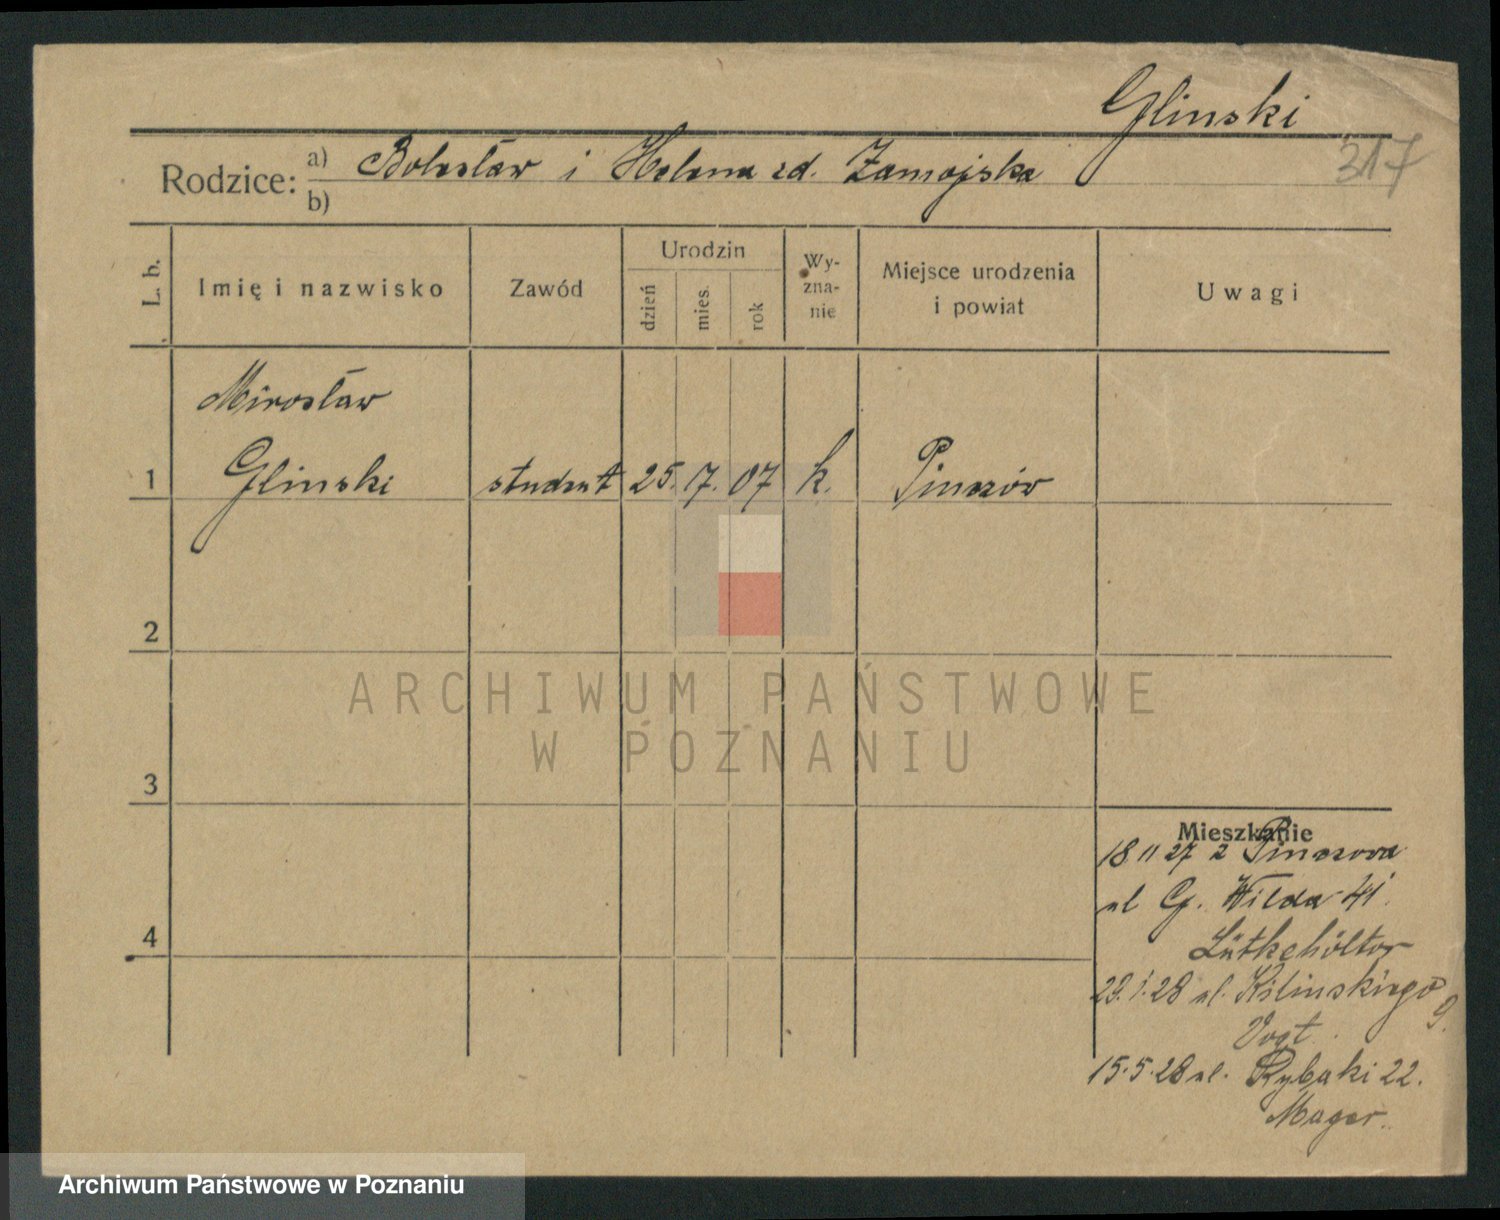 Glinski
317
Rodzice: a) Bolesław i Helena zd. Zamojska
b)
L. b.
Imię i nazwisko
Zawód
Urodzin
dzień
mies.
rok
Wy-
zna-
nie
Miejsce urodzenia
i powiat
Uwagi
Mirosław
1 Glinski student 25. 7. 07 k. Pinczów
2
3
4
Mieszkanie
18 11 27 z Pinczowa
ul G. Wilda 41.
Lütkehölter
29.1.28 ul. Kilinskiego
9.
Vogt.
15.5.28 ul. Rybaki 22.
Mager.
ARCHIWUM PAŃSTWOWE
W POZNANIU
Archiwum Państwowe w Poznaniu